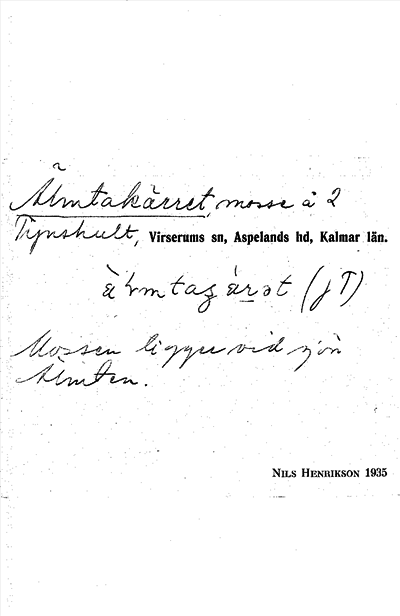 Älmtakärret, mosse å 2
Tynshult, Virserums sn, Aspelands hd, Kalmar län.
(JT)
Mossen ligger vid sjön
Älmten.
NILS HENRIKSON 1935